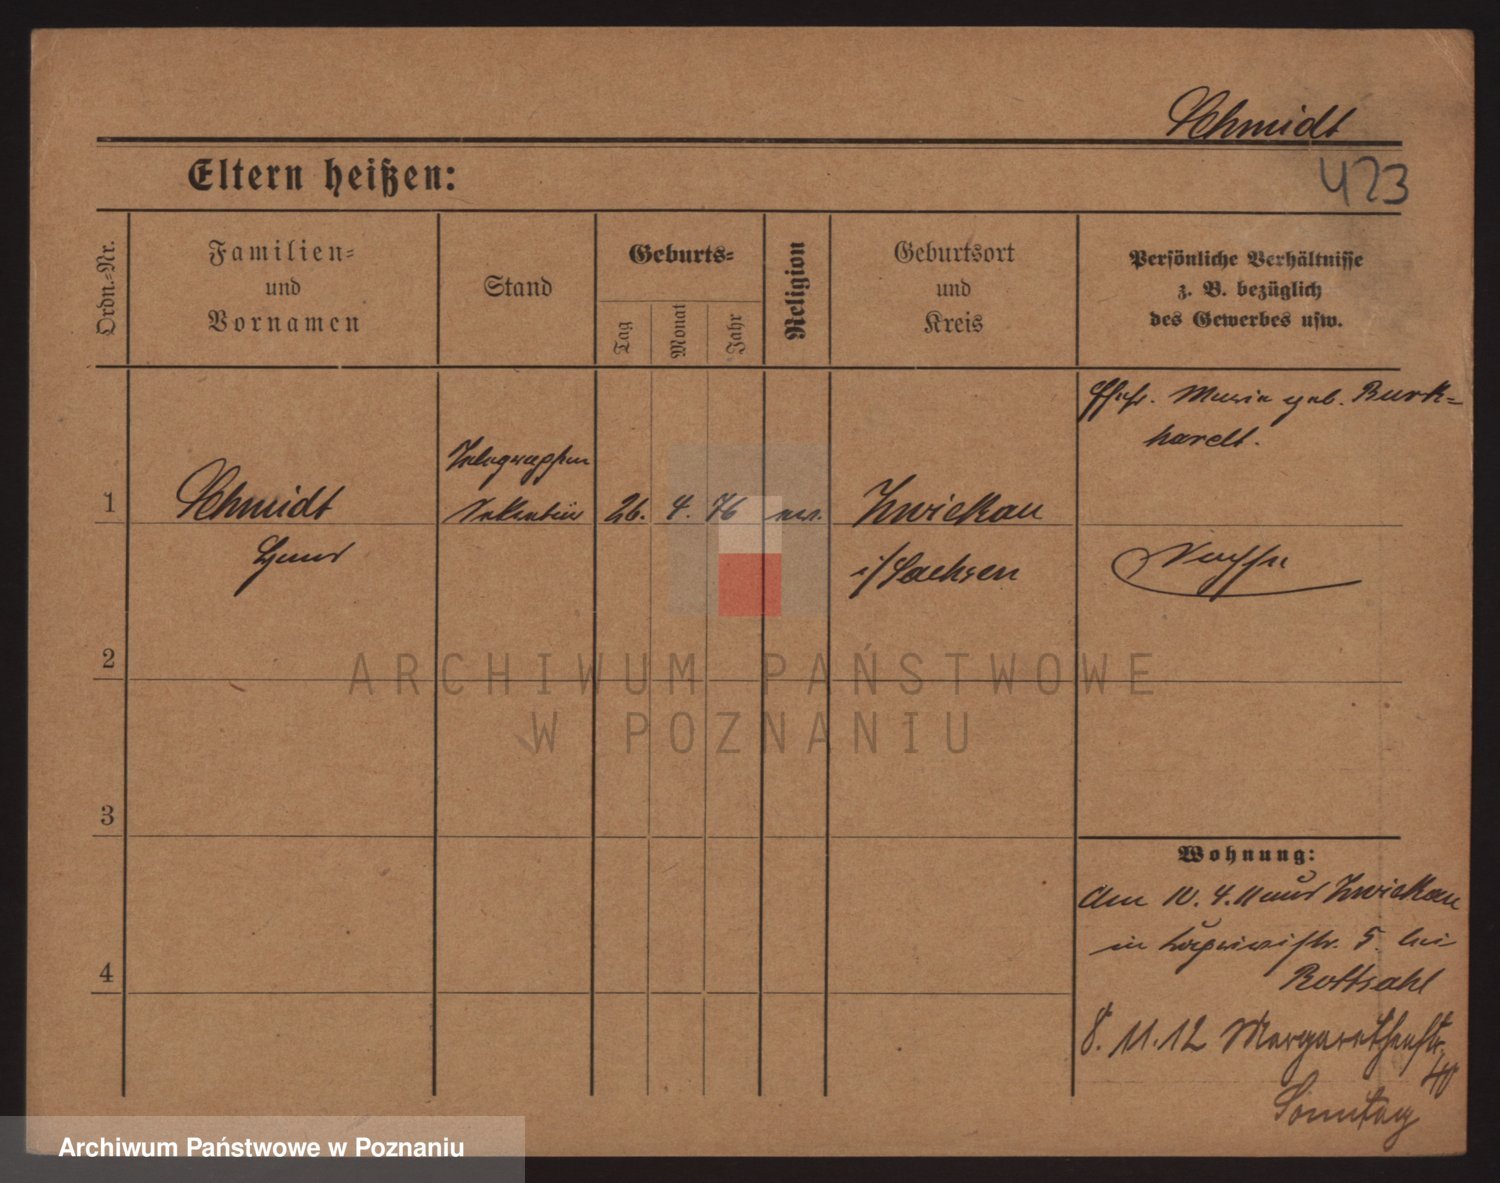 Schmidt
423
Eltern heißen:
Ordn.=Nr.
Familien=
und
Vornamen
Stand
Geburts=
Tag
Monat
Jahr
Religion
Geburtsort
und
Kreis
Persönliche Verhältnisse
z. B. bezüglich
des Gewerbes usw.
Ehefr. Marie geb. Burk=
hardt.
Telegraphen
1
Schmidt
Sekretär
26.
4.
76
ev.
Zwickau
i/Sachsen
2
3
4
Wohnung:
Am 10. 4. 11 aus Zwickau
in 5. bei
Rottsahl
8. 11. 12 Margarethenstr.
40
Sonntag
ARCHIWUM PAŃSTWOWE
W POZNANIU
Archiwum Państwowe w Poznaniu